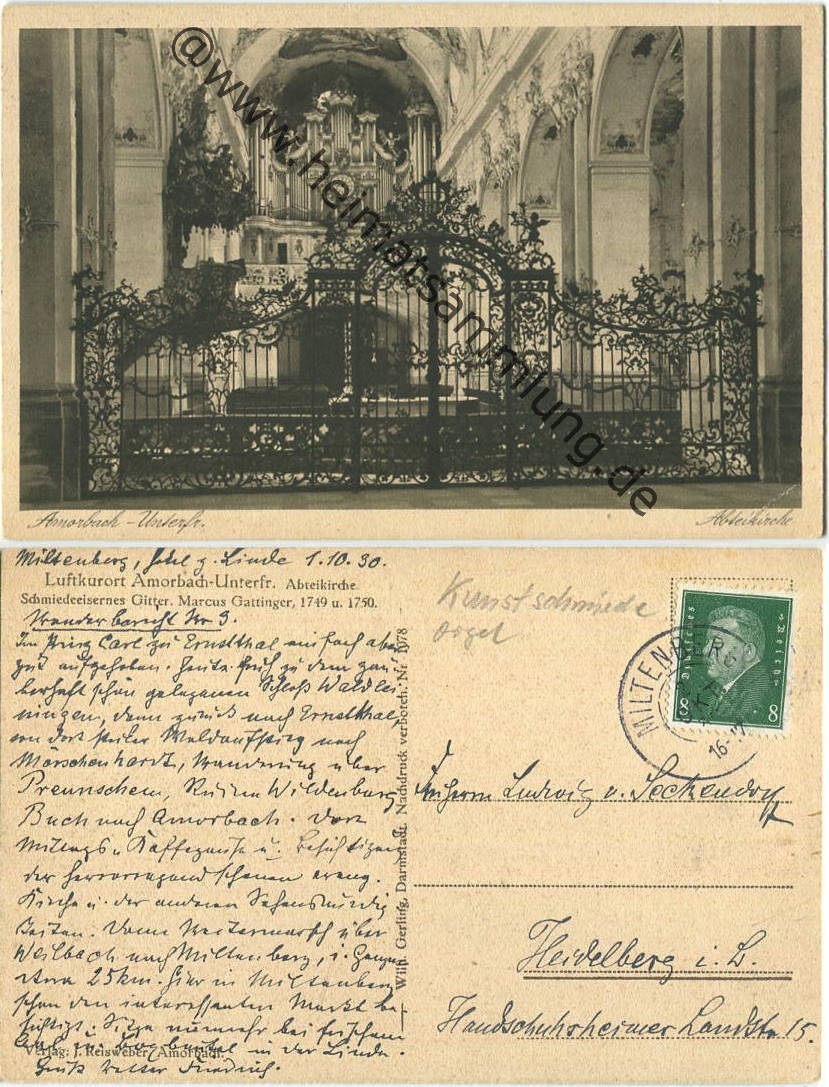 @www.heimatsammlung.de
Amorbach - Unterfr.
Abteikirche
Miltenberg, Hotel z. Linde 1.10.30.
Luftkurort Amorbach-Unterfr. Abteikirche.
Schmiedeeisernes Gitter. Marcus Gattinger, 1749 u. 1750.
Wanderbericht Nr 3.
Im Prinz Carl zu Ernsttal einfach aber
gut aufgehoben. Heute früh zu dem zau-
berhaft schön gelegenen Schloß Waldlei-
ningen, dann zurück nach Ernstthal,
von dort Waldaufstieg nach
Mörschenhardt, Wanderung über
Preunschem, Ruine Wildenburg,
Buch nach Amorbach. Dort
Mittags u Kaffepause u. Besichtigung
der hervorragend schönen evang.
Kirche u. der anderen Sehenswürdig
keiten. Dann Weitermarsch über
Weilbach nach Miltenberg, i. Ganzen
etwa 25 km. Hier in Miltenberg
schon den interessanten Markt be-
sichtigt. Sitze nunmehr bei
in der Linde.
Gruß Vetter Friedrich.
Verlag: J. Reisweber, Amorbach.
Wilh. Gerling, Darmstadt. Nachdruck verboten. Nr. 1678
Kunstschmiede
Orgel
Deutsches Reich
8 8
MILTENBERG
16-17
Ludwig v. Seckendorff
Heidelberg i. B.
Handschuhsheimer Landstr 15.